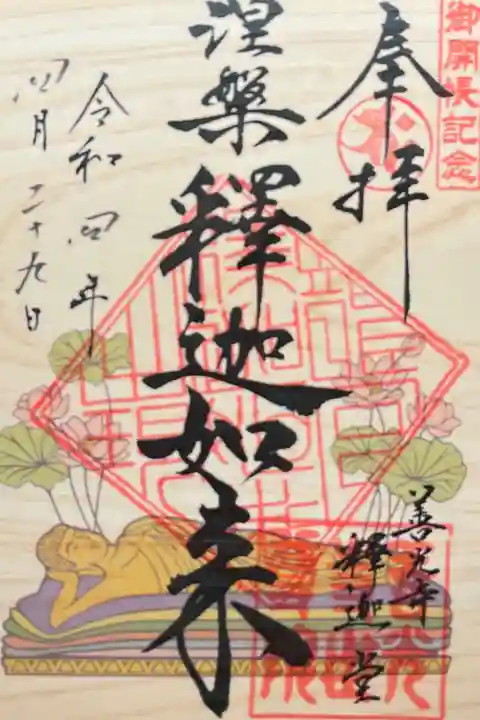 御開帳記念
奉拝
善光寺
釋迦堂
涅槃釋迦如来
令和四年
四月二十九日